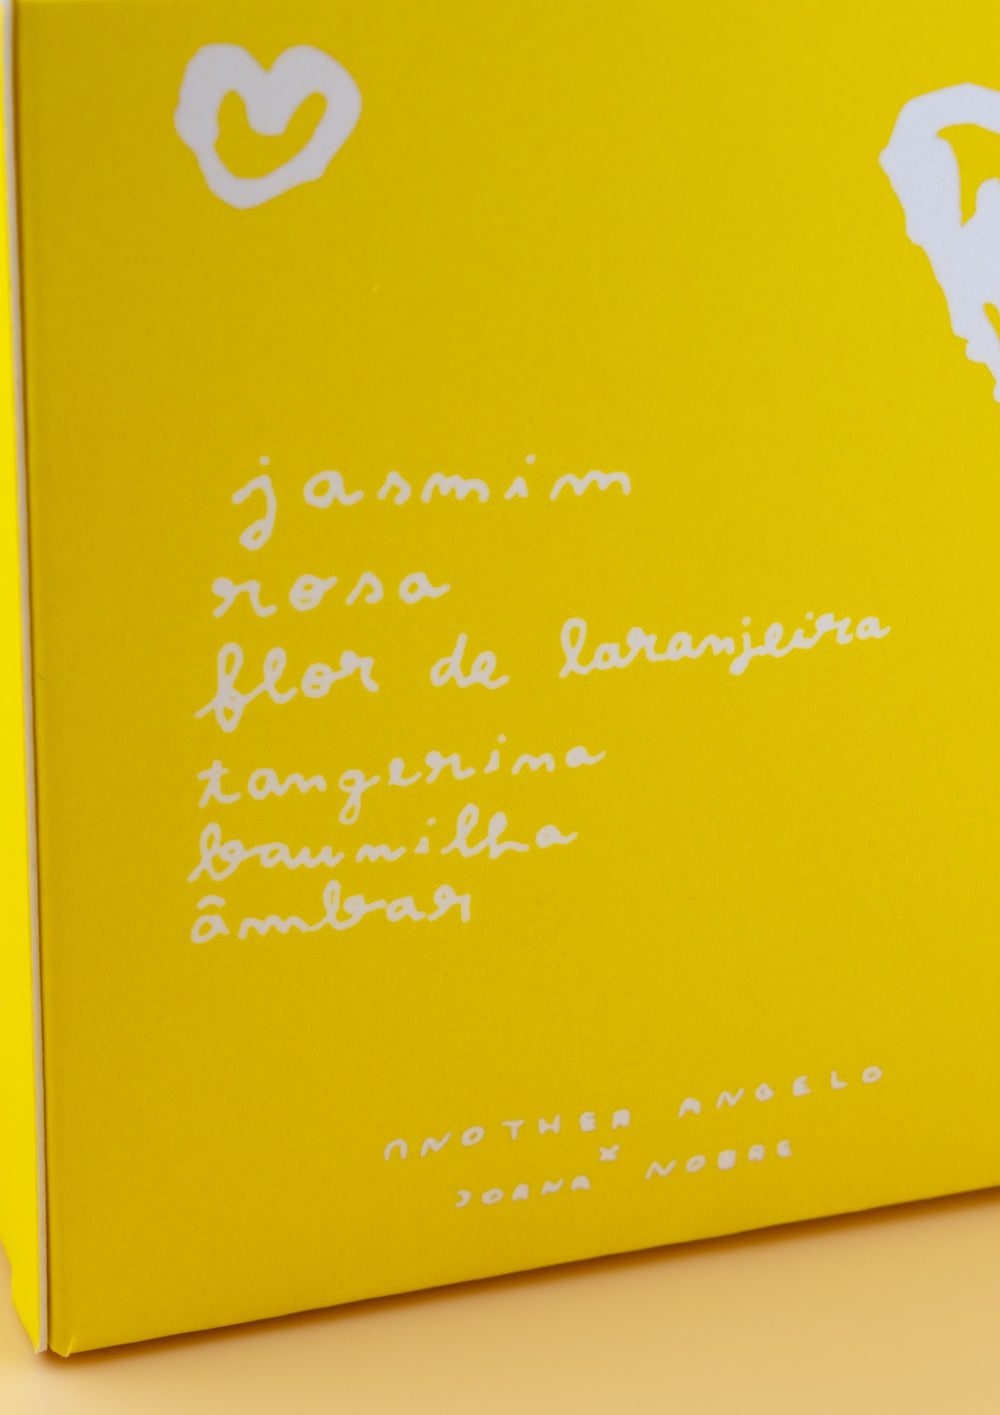 jasmim
rosa
flor de laranjeira
tangerina
baunilha
âmbar
ANOTHER ANGELO
x
JOANA NOBRE